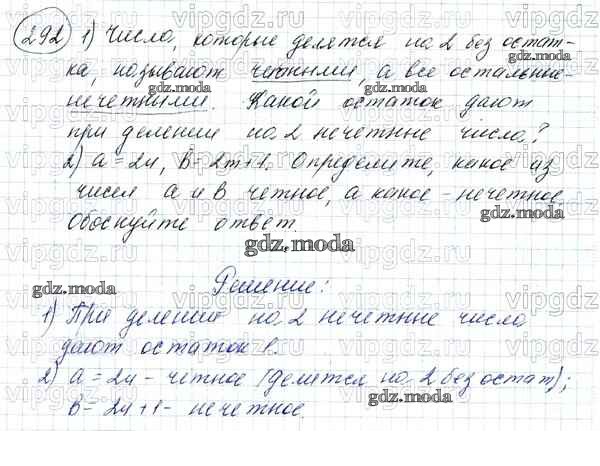 292 1) Числа, которые делятся на 2 без остат-
ка, называют четными, а все остальные-
нечетными. Какой остаток дают
при делении на 2 нечетные числа?
2) a=2n, b=2m+1. Определите, какое из
чисел a и b четное, а какое - нечетное.
Обоснуйте ответ.
gdz.moda
Решение:
1) При делении на 2 нечетные числа
дают остаток 1.
2) a=2n - четное (делится на 2 без остат);
b=2n+1 - нечетное.